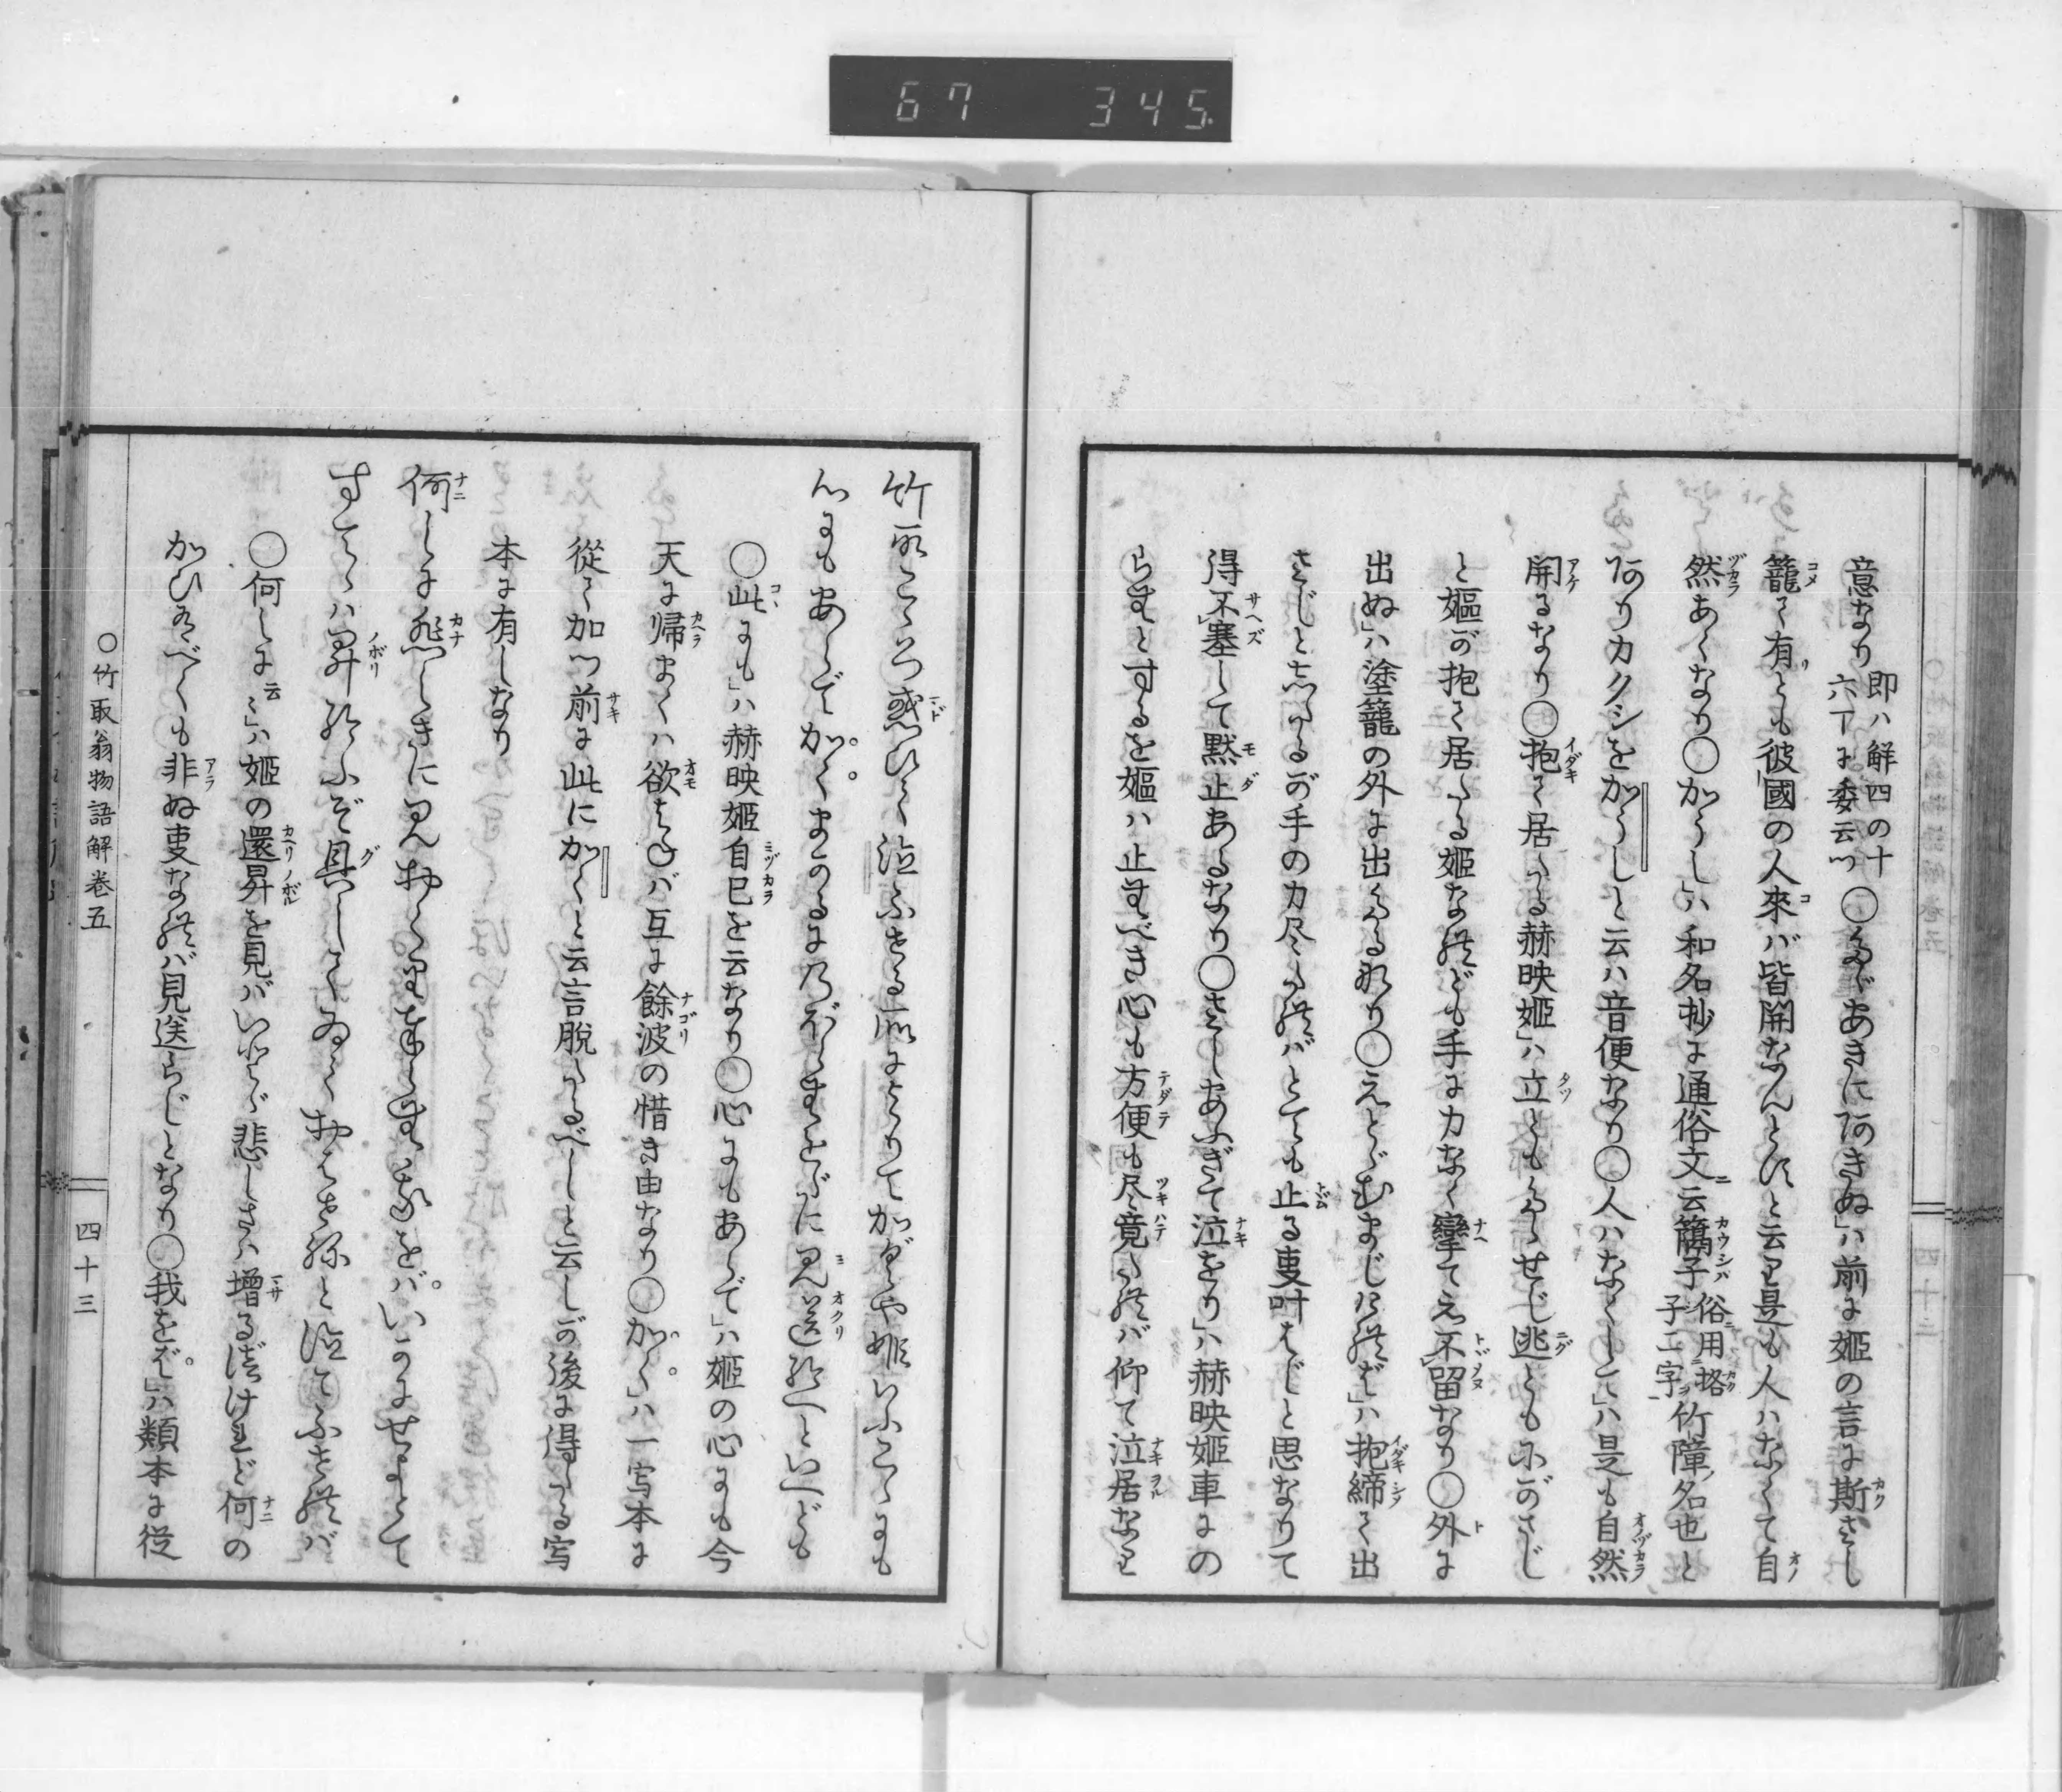 67 345
意なり 即ハ解四の十六丁に委云つ ○たゞあきにあきぬ」ハ前に姫の言に斯さし
籠て有とも彼國の人來バ皆開なんとすと云り是も人ハなくて自
然あくなり○かうし」ハ和名抄に通俗文ニ云籬子 俗用挌子二字 竹障ノ名也と
ありカクシをかうしと云ハ音便なり○人ハなくして」ハ是も自然
開るなり○抱て居たる赫映姫」ハ立ともたゝせじ逃ともにがさじ
と嫗が抱て居たる姫なれども手に力なく攣てえ不留なり○外に
出ぬ」ハ塗籠の外に出たるなり○えとゞむまじければ」ハ抱締て出
さじと志たるが手の力尽たれバとても止る叓叶はじと思なりて
得不塞して黙止あるなり○さしあふぎて泣をり」ハ赫映姫車にの
らむとするを嫗ハ止むべき心も方便も尽竟たれバ仰て泣居なり
竹取こゝろ惑ひて泣ふせる所によりてかぐや姫いふこゝにも
心にもあらでかくまかるにのぼらむをだに見送給へといへども
○此にも」ハ赫映姫自己を云なり○心にもあらで」ハ姫の心にも今
天に帰まくハ欲はねバ互に餘波の惜き由なり○かく」ハ一写本に
從て加つ前に此にかくと云言脱たるべしと云しが後に得たる写
本に有しなり
何しに悲しきに見おくり奉らむ我をバ。いかにせよとて
すてゝハ昇給ふぞ具してゐておはせねと泣てふせれバ
○何しに云々」ハ姫の還昇を見バいとゞ悲しさハ増るべけれど何の
かひあべくも非ぬ叓なれバ見送らじとなり○我をば。」ハ類本に従
○竹取翁物語解卷五
四十三